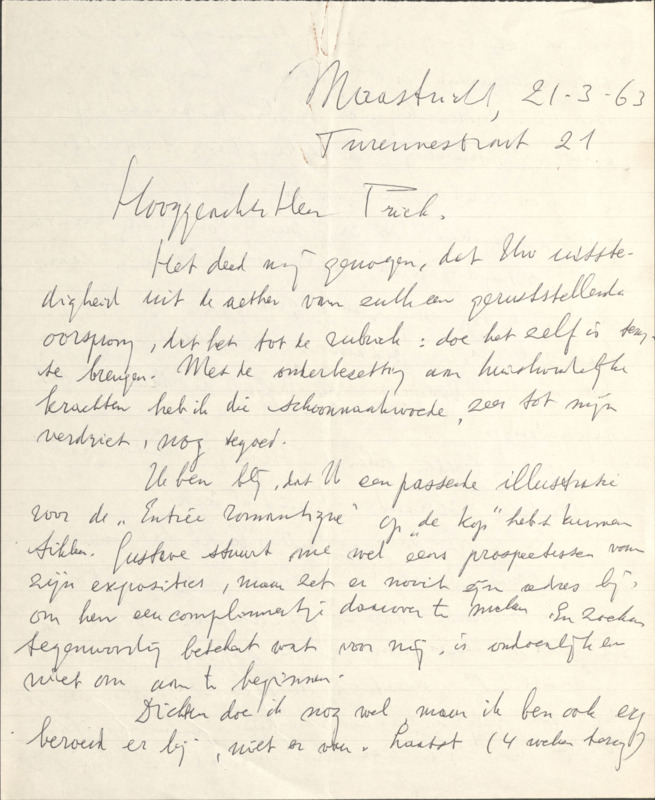 Maastricht, 21-3-63
Turennestraat 21
Hooggeachte Heer Prick.
Het deed mij genoegen, dat Uw uitste-
digheid uit de aether van zulk een geruststellende
oorsprong, dat het tot de rubriek: doe het zelf is terug
te brengen. Met de onderbezetting aan huishoudelijke
krachten heb ik die schoonmaakwoede, zeer tot mijn
verdriet, nog tegoed.
Ik ben blij, dat U een passende illustratie
voor de "Entrée romantique" op "de kop" hebt kunnen
tikken. Gustave stuurt me wel eens prospectussen van
zijn exposities, maar zet er nooit zijn adres bij,
om hem een complimentje daarover te maken. En zoeken
tegenwoordig betekent wat voor mij, is ondoenlijk en
niet om aan te beginnen.
Dichten doe ik nog wel, maar ik ben ook erg
beroerd er bij, niet er van. Laatst (4 weken terug)